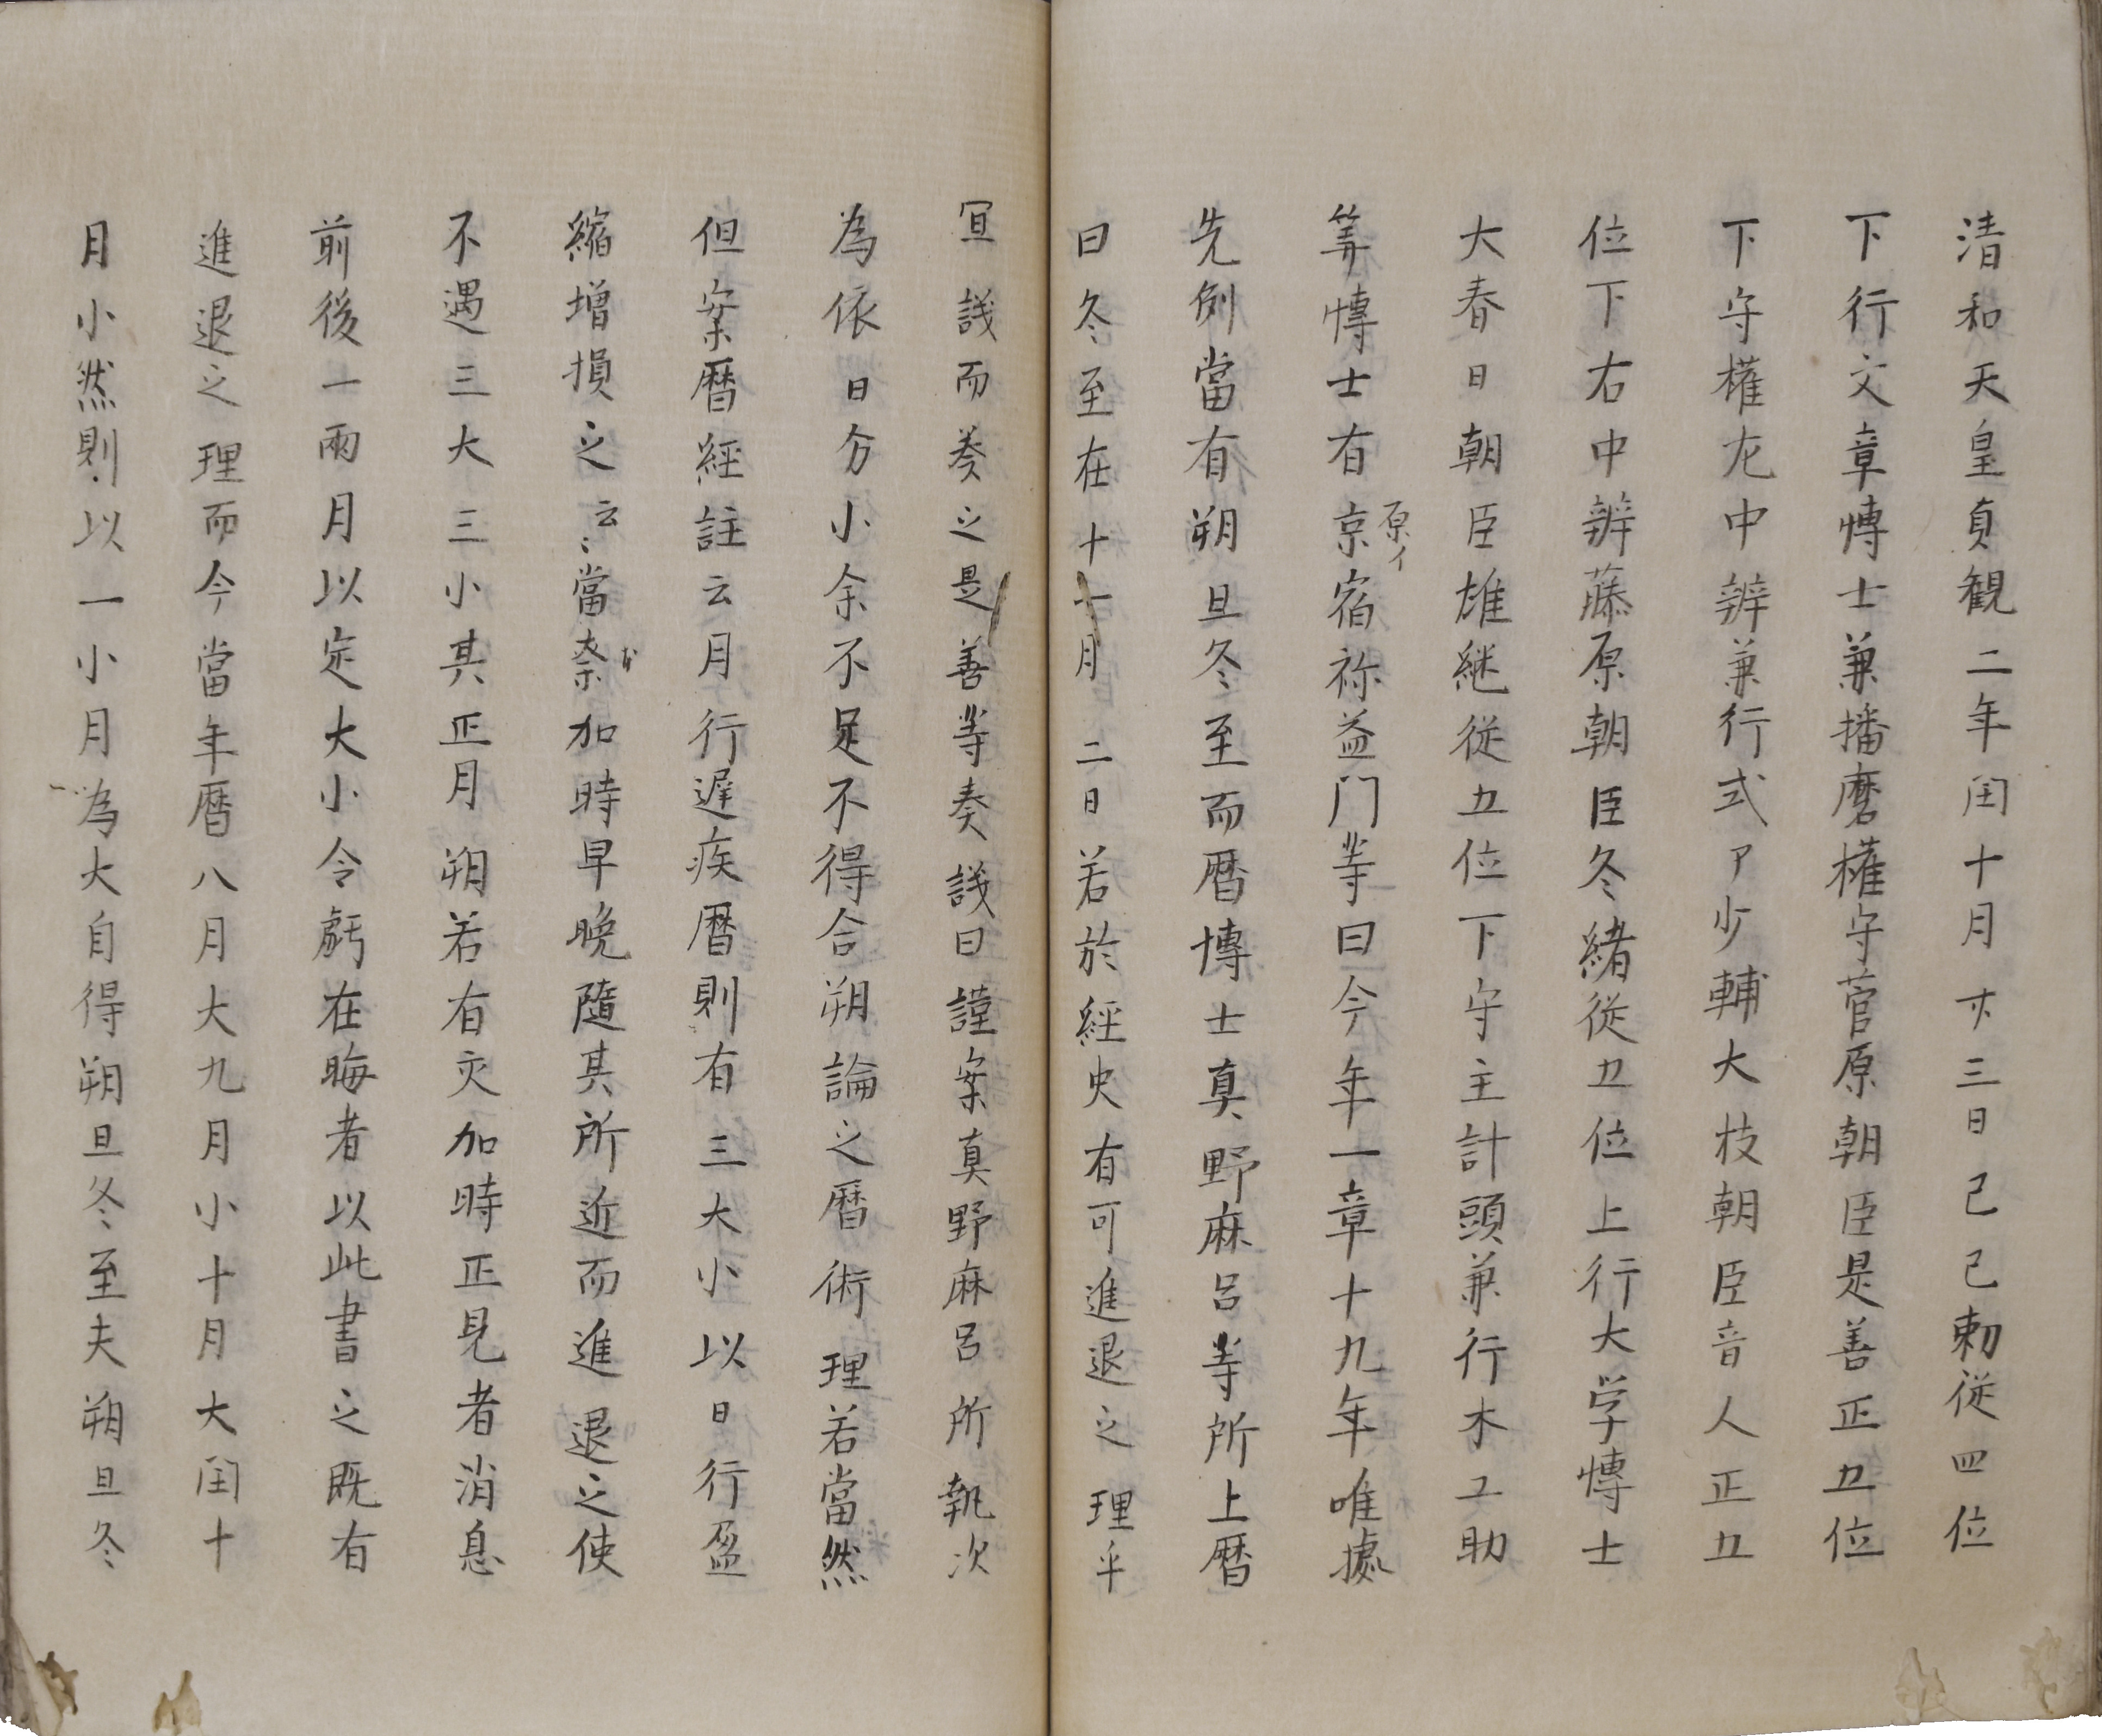 清和天皇貞観二年闰十月廿三日己巳勅従四位
下行文章博士兼播磨権守菅原朝臣是善正五位
下守権左中辨兼行式ア少輔大枝朝臣音人正五
位下右中辨藤原朝臣冬緒従五位上行大学博士
大春日朝臣雄継従五位下守主計頭兼行木工助
筭博士有京宿祢益门等曰今年一章十九年唯據
原イ
先例當有朔旦冬至而暦博士真野麻呂等所上暦
曰冬至在十一月二日若於經史有可進退之理乎
宜議而奏之是善等奏議曰謹案真野麻呂所執次
為依日分小余不足不得合朔論之暦術理若當然
但案暦經註云月行遅疾暦則有三大小以日行盈
縮増損之云〻當察加時早晩隨其所近而進退之使
不過三大三小其正月朔若有灾加時正見者消息
前後一兩月以定大小令虧在晦者以此書之既有
進退之理而今當年暦八月大九月小十月大闰十
月小然則以一小月為大自得朔旦冬至夫朔旦冬